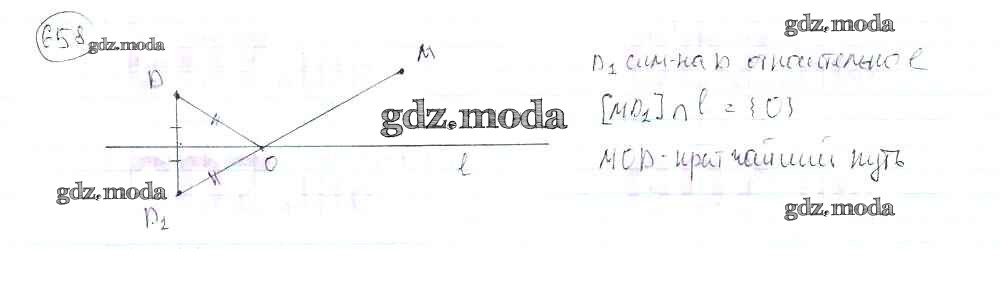 658
gdz.moda
gdz.moda
M
D
D₁ сим-на D относительно l
gdz.moda
[MD₁] ∩ l = {O}
O
l
MOD - кратчайший путь
gdz.moda
D₁
gdz.moda